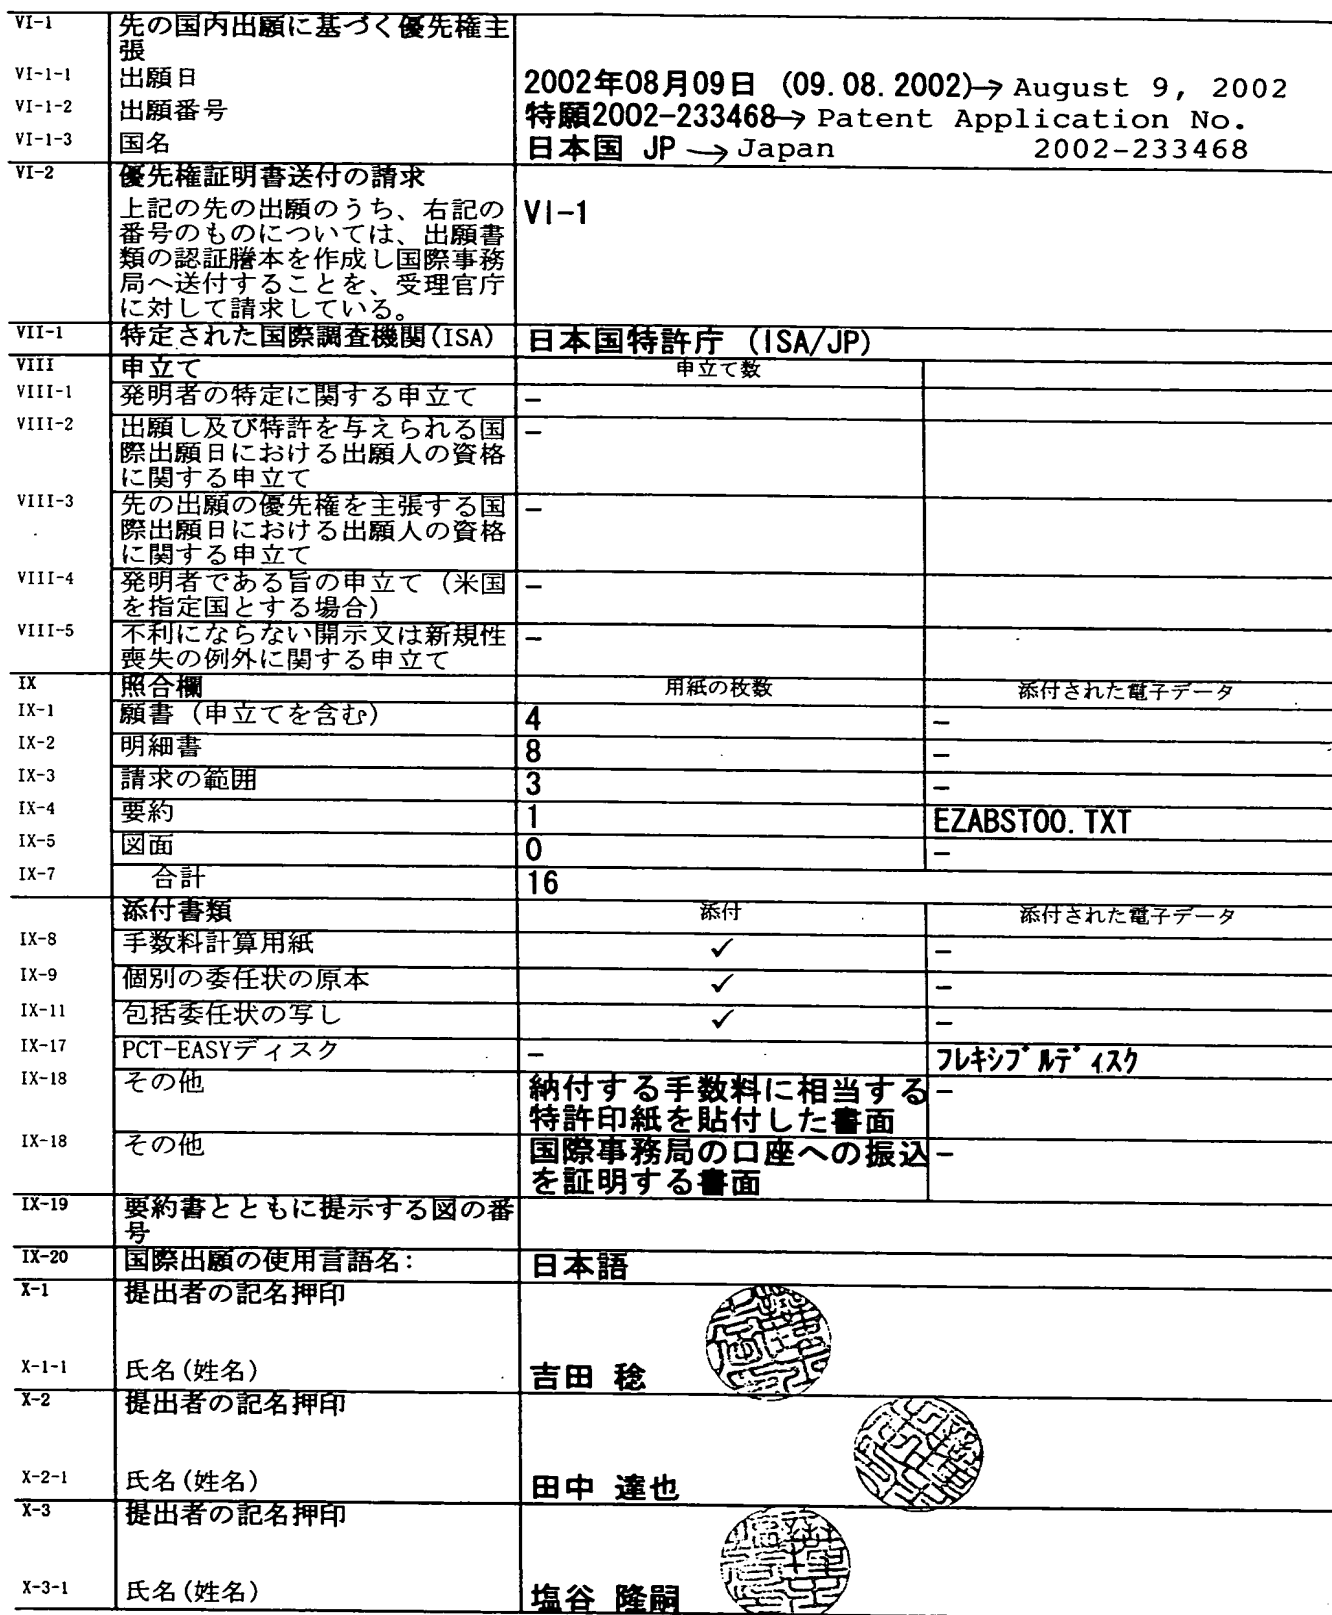 VI-1 先の国内出願に基づく優先権主
張
VI-1-1 出願日 2002年08月09日 (09.08.2002)→ August 9, 2002
VI-1-2 出願番号 特願2002-233468→ Patent Application No.
VI-1-3 国名 日本国 JP → Japan 2002-233468
VI-2 優先権証明書送付の請求
上記の先の出願のうち、右記の VI-1
番号のものについては、出願書
類の認証謄本を作成し国際事務
局へ送付することを、受理官庁
に対して請求している。
VII-1 特定された国際調査機関(ISA) 日本国特許庁 (ISA/JP)
VIII 申立て 申立て数
VIII-1 発明者の特定に関する申立て –
VIII-2 出願し及び特許を与えられる国 –
際出願日における出願人の資格
に関する申立て
VIII-3 先の出願の優先権を主張する国 –
際出願日における出願人の資格
に関する申立て
VIII-4 発明者である旨の申立て (米国 –
を指定国とする場合)
VIII-5 不利にならない開示又は新規性 –
喪失の例外に関する申立て
IX 照合欄 用紙の枚数 添付された電子データ
IX-1 願書 (申立てを含む) 4 –
IX-2 明細書 8 –
IX-3 請求の範囲 3 –
IX-4 要約 1 EZABST00.TXT
IX-5 図面 0 –
IX-7 合計 16
添付書類 添付 添付された電子データ
IX-8 手数料計算用紙 ✓ –
IX-9 個別の委任状の原本 ✓ –
IX-11 包括委任状の写し ✓ –
IX-17 PCT-EASYディスク – フレキシブルディスク
IX-18 その他 納付する手数料に相当する –
特許印紙を貼付した書面
IX-18 その他 国際事務局の口座への振込 –
を証明する書面
IX-19 要約書とともに提示する図の番
号
IX-20 国際出願の使用言語名: 日本語
X-1 提出者の記名押印
X-1-1 氏名(姓名) 吉田 稔
X-2 提出者の記名押印
X-2-1 氏名(姓名) 田中 達也
X-3 提出者の記名押印
X-3-1 氏名(姓名) 塩谷 隆嗣